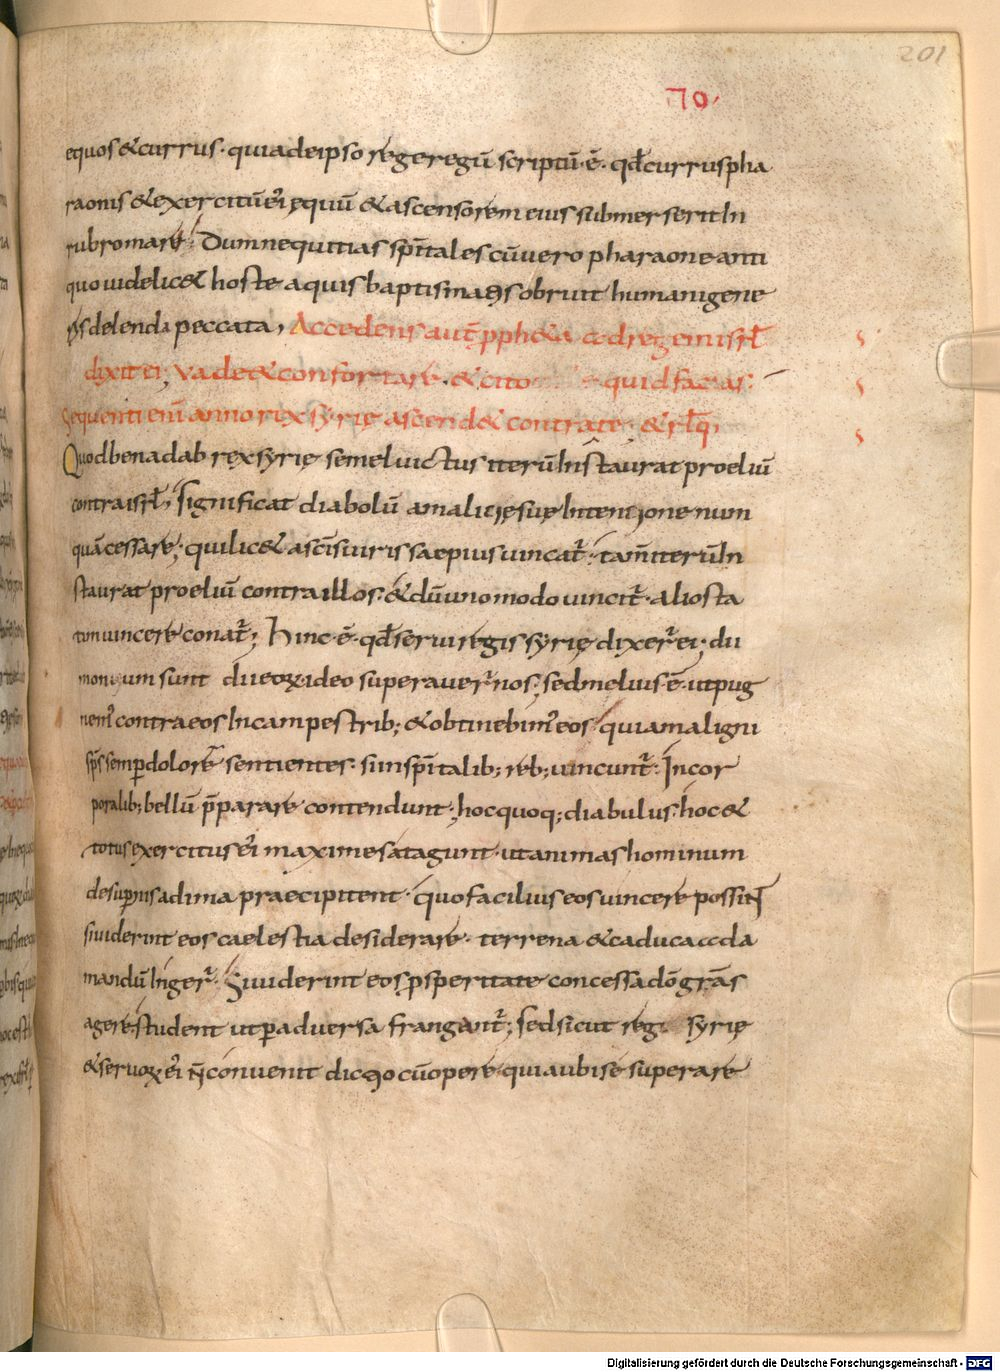 201
equos & currus · quia de ipso rege regū scriptū · ē · qđ currus pha
raonis & exercitū ei' ęquū & ascensorem eius submerserit In
rubro mare · Dum nequitias sp̄itales cū uero pharaone anti
quo uidelic& hoste aquis baptismatis obruit humani gene
ris delenda peccata, Accedens aut̄ ꝓph&a ad regem isrł
dixit ei, Vade & confortare · & cito quid facias:
Sequenti enī anno rex syrię ascend& contra te · & rł q,
Quod benadab rex syrię semel uictus iterū Instaurat proeliū
contra isrł, significat diabolū a malicię suę Intencione num
quā cessare; qui lic& a sc̄is uiris saepius uincat̄ · tam̄ iterū In
staurat proeliū contra illos · & dū uno modo uincit̄ · alio sta
tim uincere conat̄; Hinc · ē · qđ serui regis syrię dixer̄ ei; di
montium sunt dii eoꝝ ideo superauer̄ nos; sed melius · ē · ut pug
nem' contra eos In campestrib; & obtinebim' eos quia maligni
sp̄s semꝑ dolore sentientes · si in sp̄italib; reb; uincunt̄ · In cor
poralib; bellū p̄parare contendunt; hoc quoq; diabulus · hoc &
totus exercitus ei' maxime satagunt · ut animas hominum
de suꝑnis ad ima praecipitent · quo facilius eos uincere possint
si uiderint eos caelestia desiderare · terrena & caduca ad a
mandū Inger̄ · Si uiderint eos ꝓsperitate concessa dō grās
agere student ut ꝑ aduersa frangant̄; sed sicut regi syrię
& seruoꝝ ei' n̄ conuenit dictio cū opere · quia ubi se superare